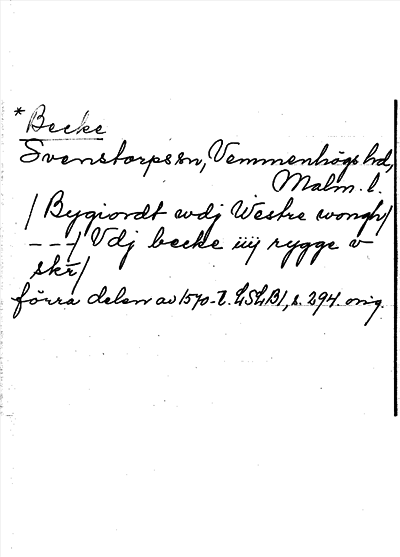 * Becke
Svenstorps sn, Vemmenhögs hd,
Malm. l.
/ Bygiordt wdj Westre wongh/
---/ Vdj becke iiij rygge v
skr/
förra delen av 1570-t. LSLB1, s. 294. orig.